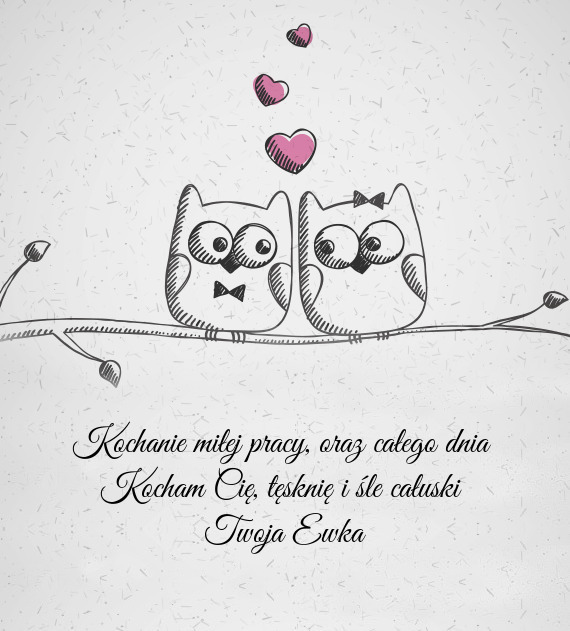 Kochanie miłej pracy, oraz całego dnia
Kocham Cię, tęsknię i śle całuski
Twoja Ewka